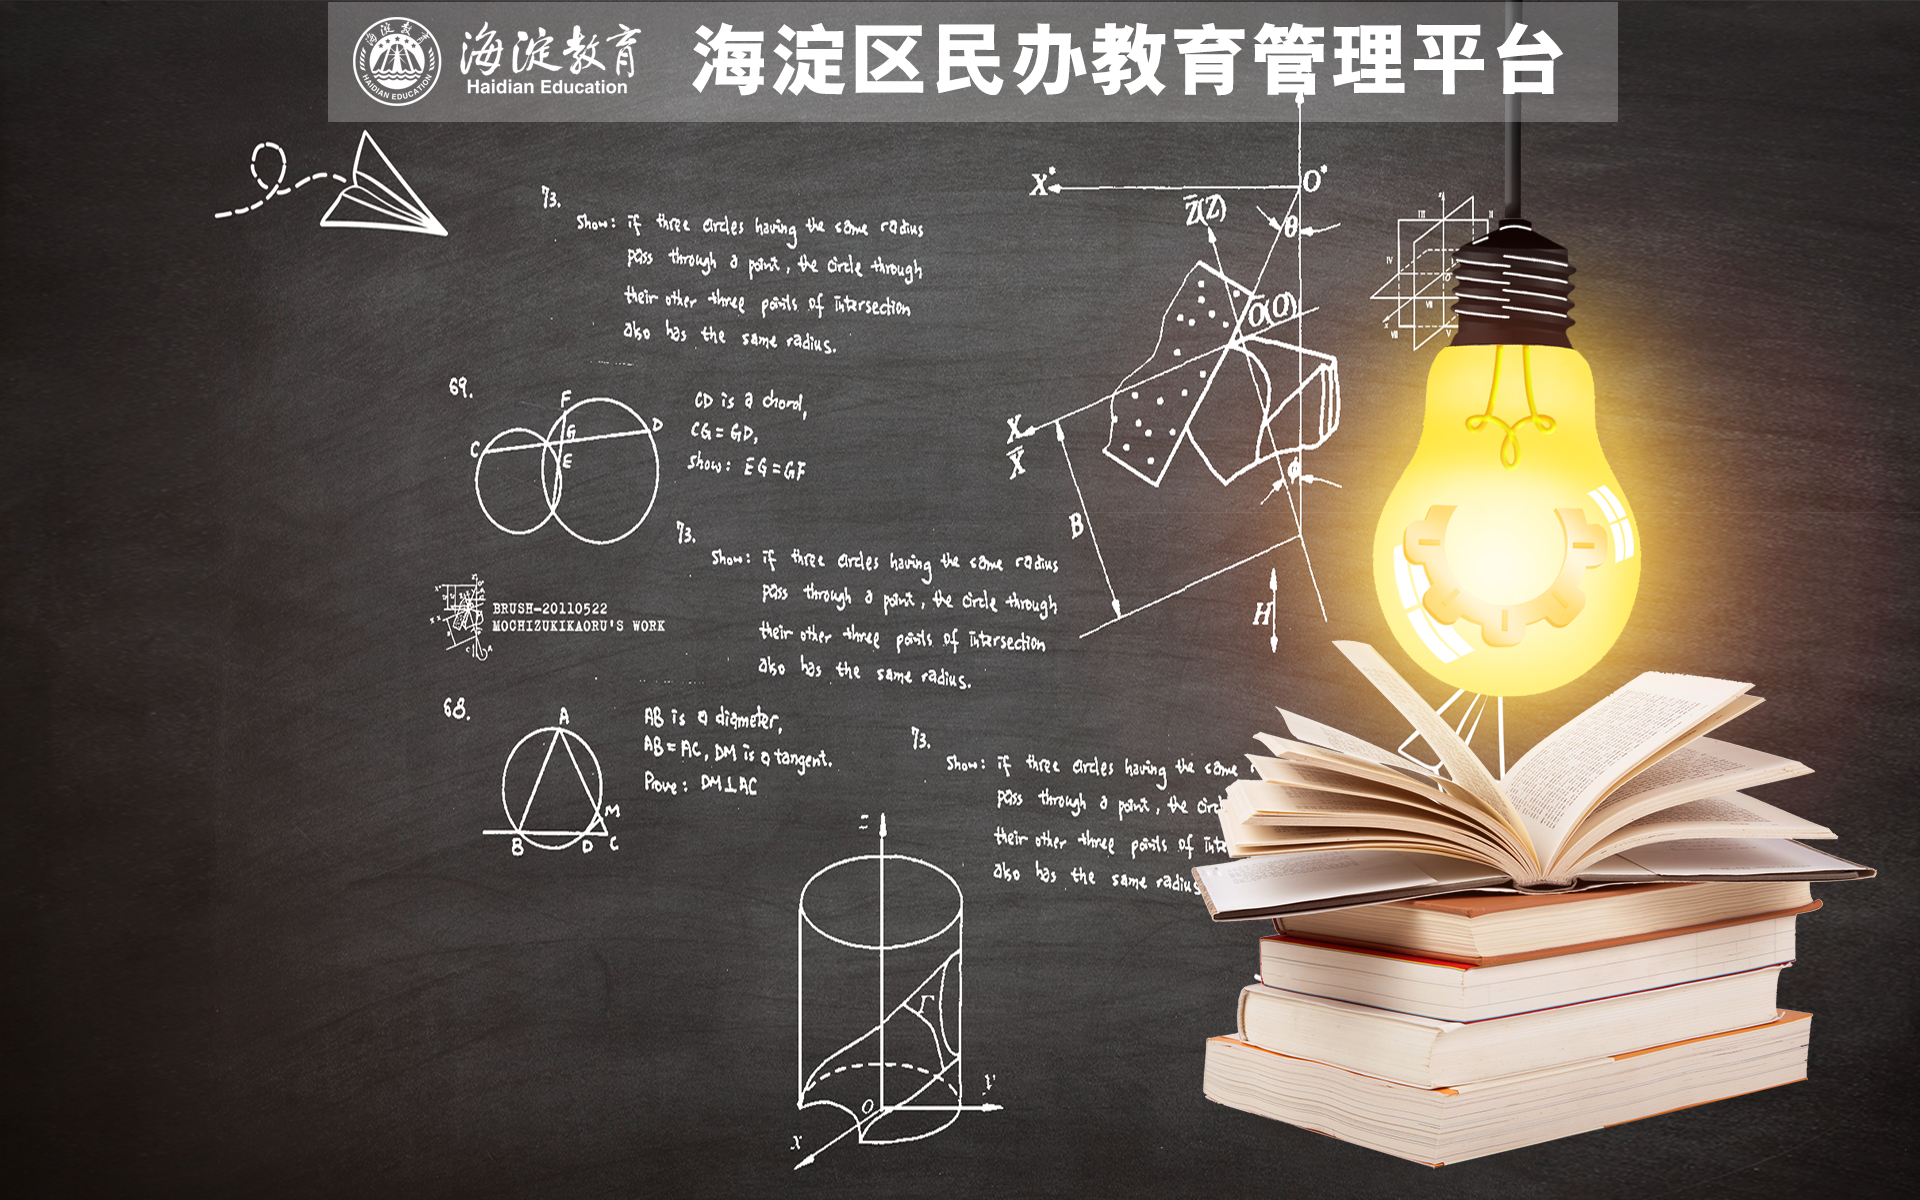 海淀教育
HAIDIAN EDUCATION
海淀教育
Haidian Education
海淀区民办教育管理平台
73.
Show: if three circles having the same radius
pass through a point, the circle through
their other three points of intersection
also has the same radius.
X*
O*
Z̄(Z)
θ
Ō(O)
X
X̄
B
ϕ
H
III
II
IV
VI
VII
V
69.
F
C
G
D
E
CD is a chord,
CG = GD,
Show: EG = GF
73.
Show: if three circles having the same radius
pass through a point, the circle through
their other three points of intersection
also has the same radius.
BRUSH-20110522
MOCHIZUKIKAORU'S WORK
68.
A
M
B
D
C
AB is a diameter,
AB = AC, DM is a tangent.
Prove: DM⊥AC
73.
Show: if three circles having the same
pass through a point, the circ
their other three points of inte
also has the same radius
Γ
O
y
x